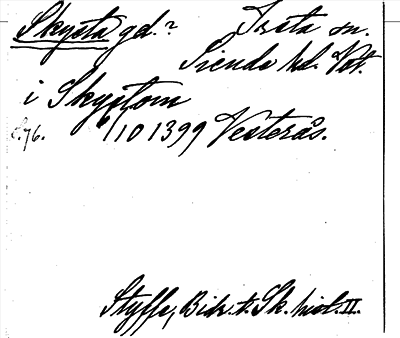 Skysta gd.? Irsta sn.
Siende hd. Vstm.
i Skystom
s. 76. 1/10 1399 Vesterås.
Styffe, Bidr. t. Sk. hist. II.